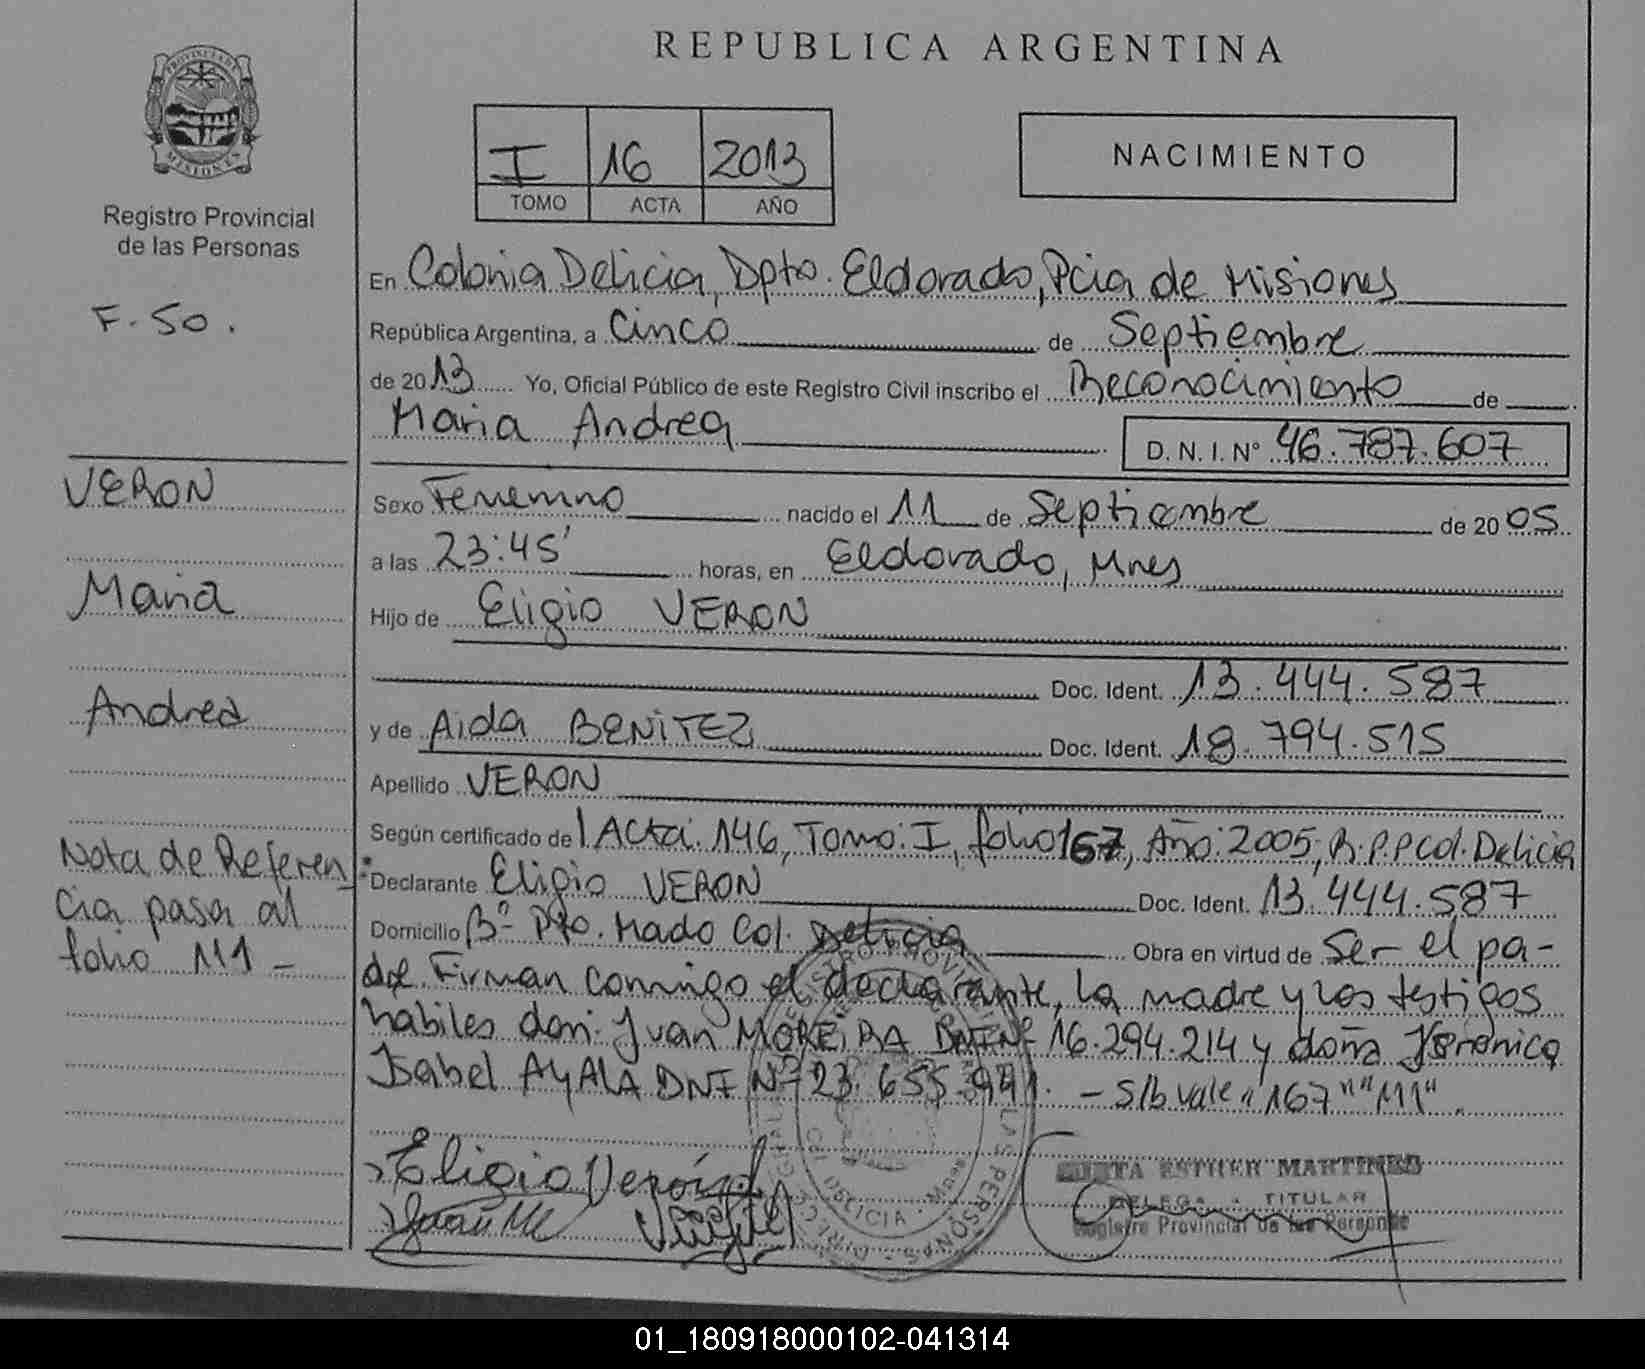 REPUBLICA ARGENTINA
PROVINCIA DE
MISIONES
Registro Provincial
de las Personas
F-50.
I 16 2013
TOMO ACTA AÑO
NACIMIENTO
En Colonia Delicia, Dpto. Eldorado, Pcia de Misiones
República Argentina, a Cinco de Septiembre
de 2013 Yo, Oficial Público de este Registro Civil inscribo el Reconocimiento de
Maria Andrea D. N. I. N° 46.787.607
VERON
Maria
Andrea
Sexo Femenino nacido el 11 de Septiembre de 2005
a las 23:45' horas, en Eldorado, Mnes
Hijo de Eligio VERON
Doc. Ident. 13.444.587
y de Aida BENITEZ Doc. Ident. 18.794.515
Apellido VERON
Según certificado de Acta: 146, Tomo: I, folio 167, Año: 2005, R.P.P Col. Delicia
Nota de Referen
cia pasa al
folio 111 -
Declarante Eligio VERON Doc. Ident. 13.444.587
Domicilio B° Pto. Mado Col. Delicia Obra en virtud de Ser el pa-
dre. Firman conmigo el declarante, la madre y los testigos
habiles don: Juan MOREIRA DNI N° 16.294.214 y doña Veronica
Isabel AYALA DNI N° 23.655.991. - S/b vale "167" "111".
Eligio Verón
MARTA ESTHER MARTINEZ
DELEGADA TITULAR
Registro Provincial de las Personas
01_180918000102-041314